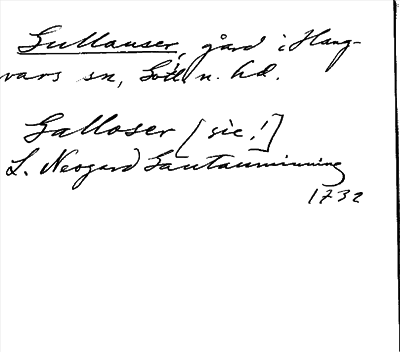 Gullauser, gård i Hang-
vars sn, Gotl n. hd.
Galloser [sic!]
L. Neogard Gautauminning
1732